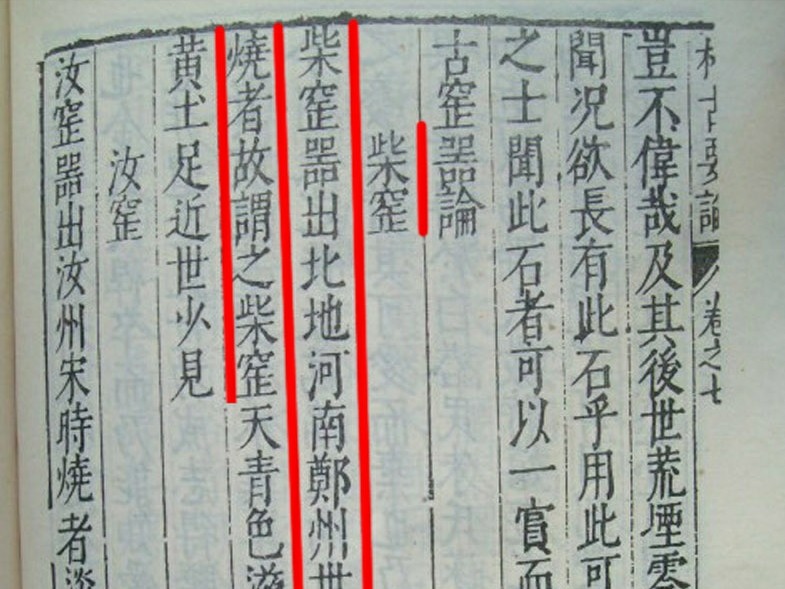 格古要論 卷之七
豈不偉哉及其後世荒堙零
聞況欲長有此石乎用此可
之士聞此石者可以一賞而
古窑器論
柴窑
柴窑器出北地河南鄭州世
燒者故謂之柴窑天青色滋
黄土足近世少見
汝窑
汝窑器出汝州宋時燒者淡